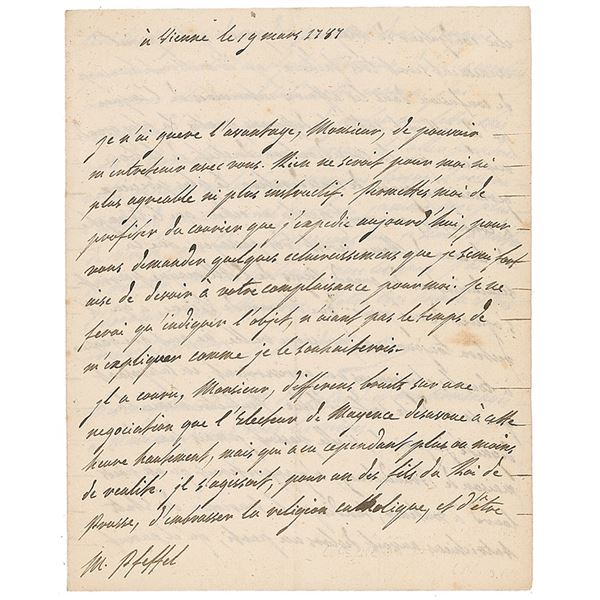 à Vienne le 19 mars 1787
je n'ai guere l'avantage, Monsieur, de pouvoir
m'entretenir avec vous. Rien ne seroit pour moi ni
plus agreable ni plus instructif. Promettés moi de
profiter du courier que j'expedie aujourd'hui, pour
vous demander quelques eclaircissemens que je serai fort
aise de devoir à votre complaisance pour moi. je ne
ferai qu'indiquer l'objet, n'aiant pas le temps de
m'expliquer comme je le souhaiterois.
jl a couru, Monsieur, differens bruits sur une
negociation que l'Electeur de Mayence desavoue à cette
heure hautement, mais qui a eu cependant plus ou moins
de realité. jl s'agissoit, pour un des fils du Roi de
Prusse, d'embrasser la religion catholique, et d'être
M. Pfeffel